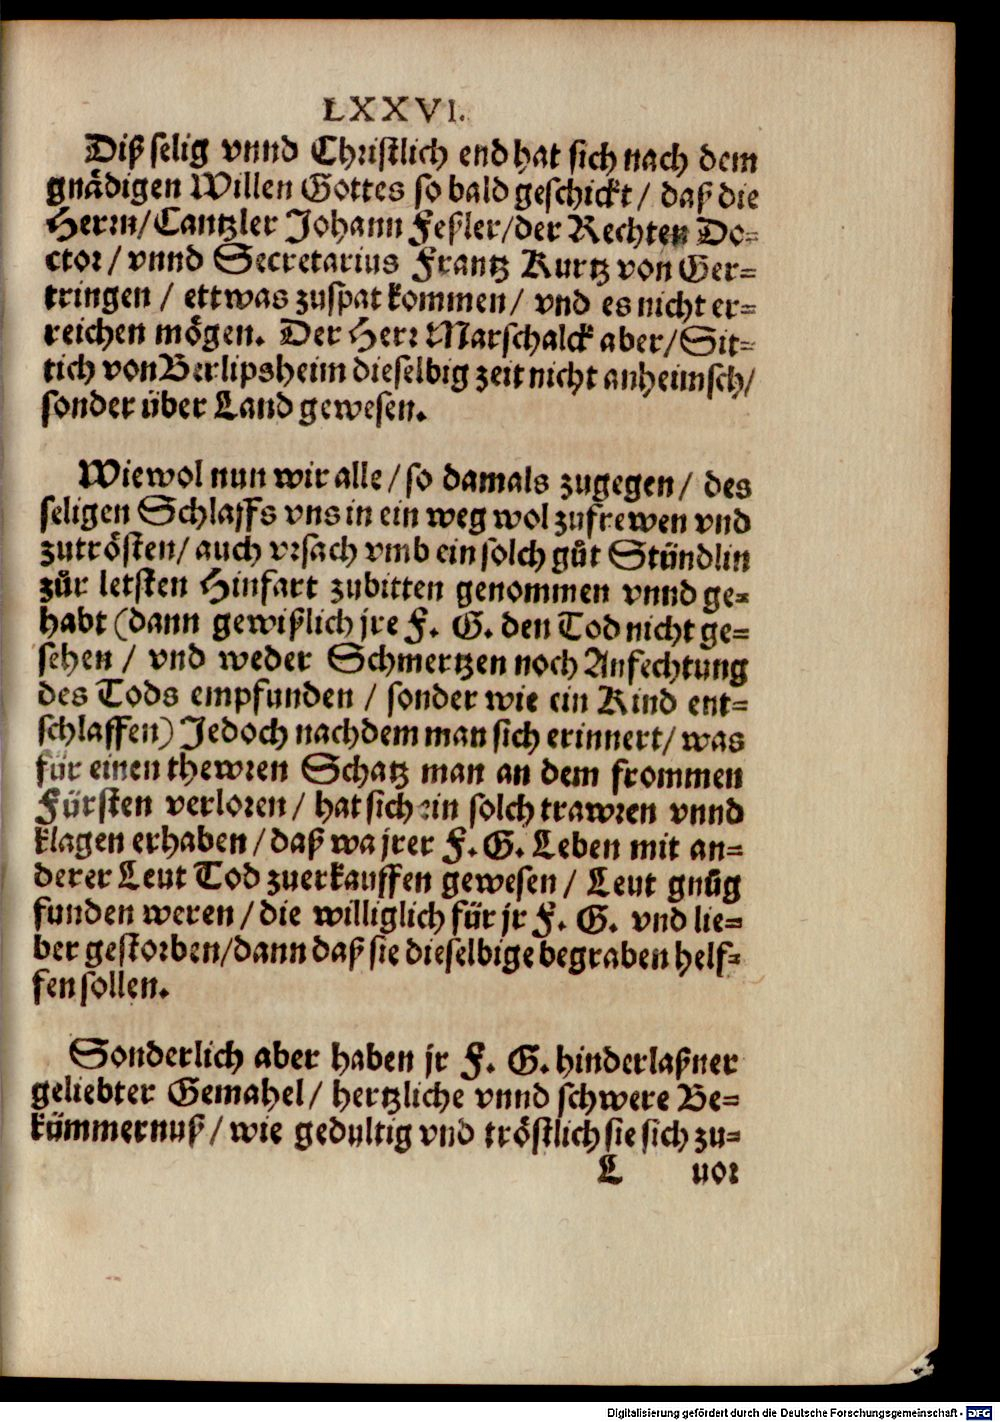 LXXVI.
Diß selig vnnd Christlich end hat sich nach dem
gnädigen Willen Gottes so bald geschickt / daß die
Herrn / Cantzler Johann Feßler / der Rechten Do=
ctor / vnnd Secretarius Frantz Kurtz von Ger=
tringen / ettwas zuspat kommen / vnd es nicht er=
reichen mögen. Der Herr Marschalck aber / Sit=
tich von Berlipsheim dieselbig zeit nicht anheimsch /
sonder über Land gewesen.
Wiewol nun wir alle / so damals zugegen / des
seligen Schlaffs vns in ein weg wol zufrewen vnd
zutrösten / auch vrsach vmb ein solch gůt Stündlin
zůr letsten Hinfart zubitten genommen vnnd ge=
habt (dann gewißlich jre F. G. den Tod nicht ge=
sehen / vnd weder Schmertzen noch Anfechtung
des Tods empfunden / sonder wie ein Kind ent=
schlaffen) Jedoch nachdem man sich erinnert / was
für einen thewren Schatz man an dem frommen
Fürsten verloren / hat sich ein solch trawren vnnd
klagen erhaben / daß wa jrer F. G. Leben mit an=
derer Leut Tod zuerkauffen gewesen / Leut gnůg
funden weren / die williglich für jr F. G. vnd lie=
ber gestorben / dann daß sie dieselbige begraben helf=
fen sollen.
Sonderlich aber haben jr F. G. hinderlaßner
geliebter Gemahel / hertzliche vnnd schwere Be=
kümmernuß / wie gedultig vnd tröstlich sie sich zu=
L uor
Digitalisierung gefördert durch die Deutsche Forschungsgemeinschaft - DFG